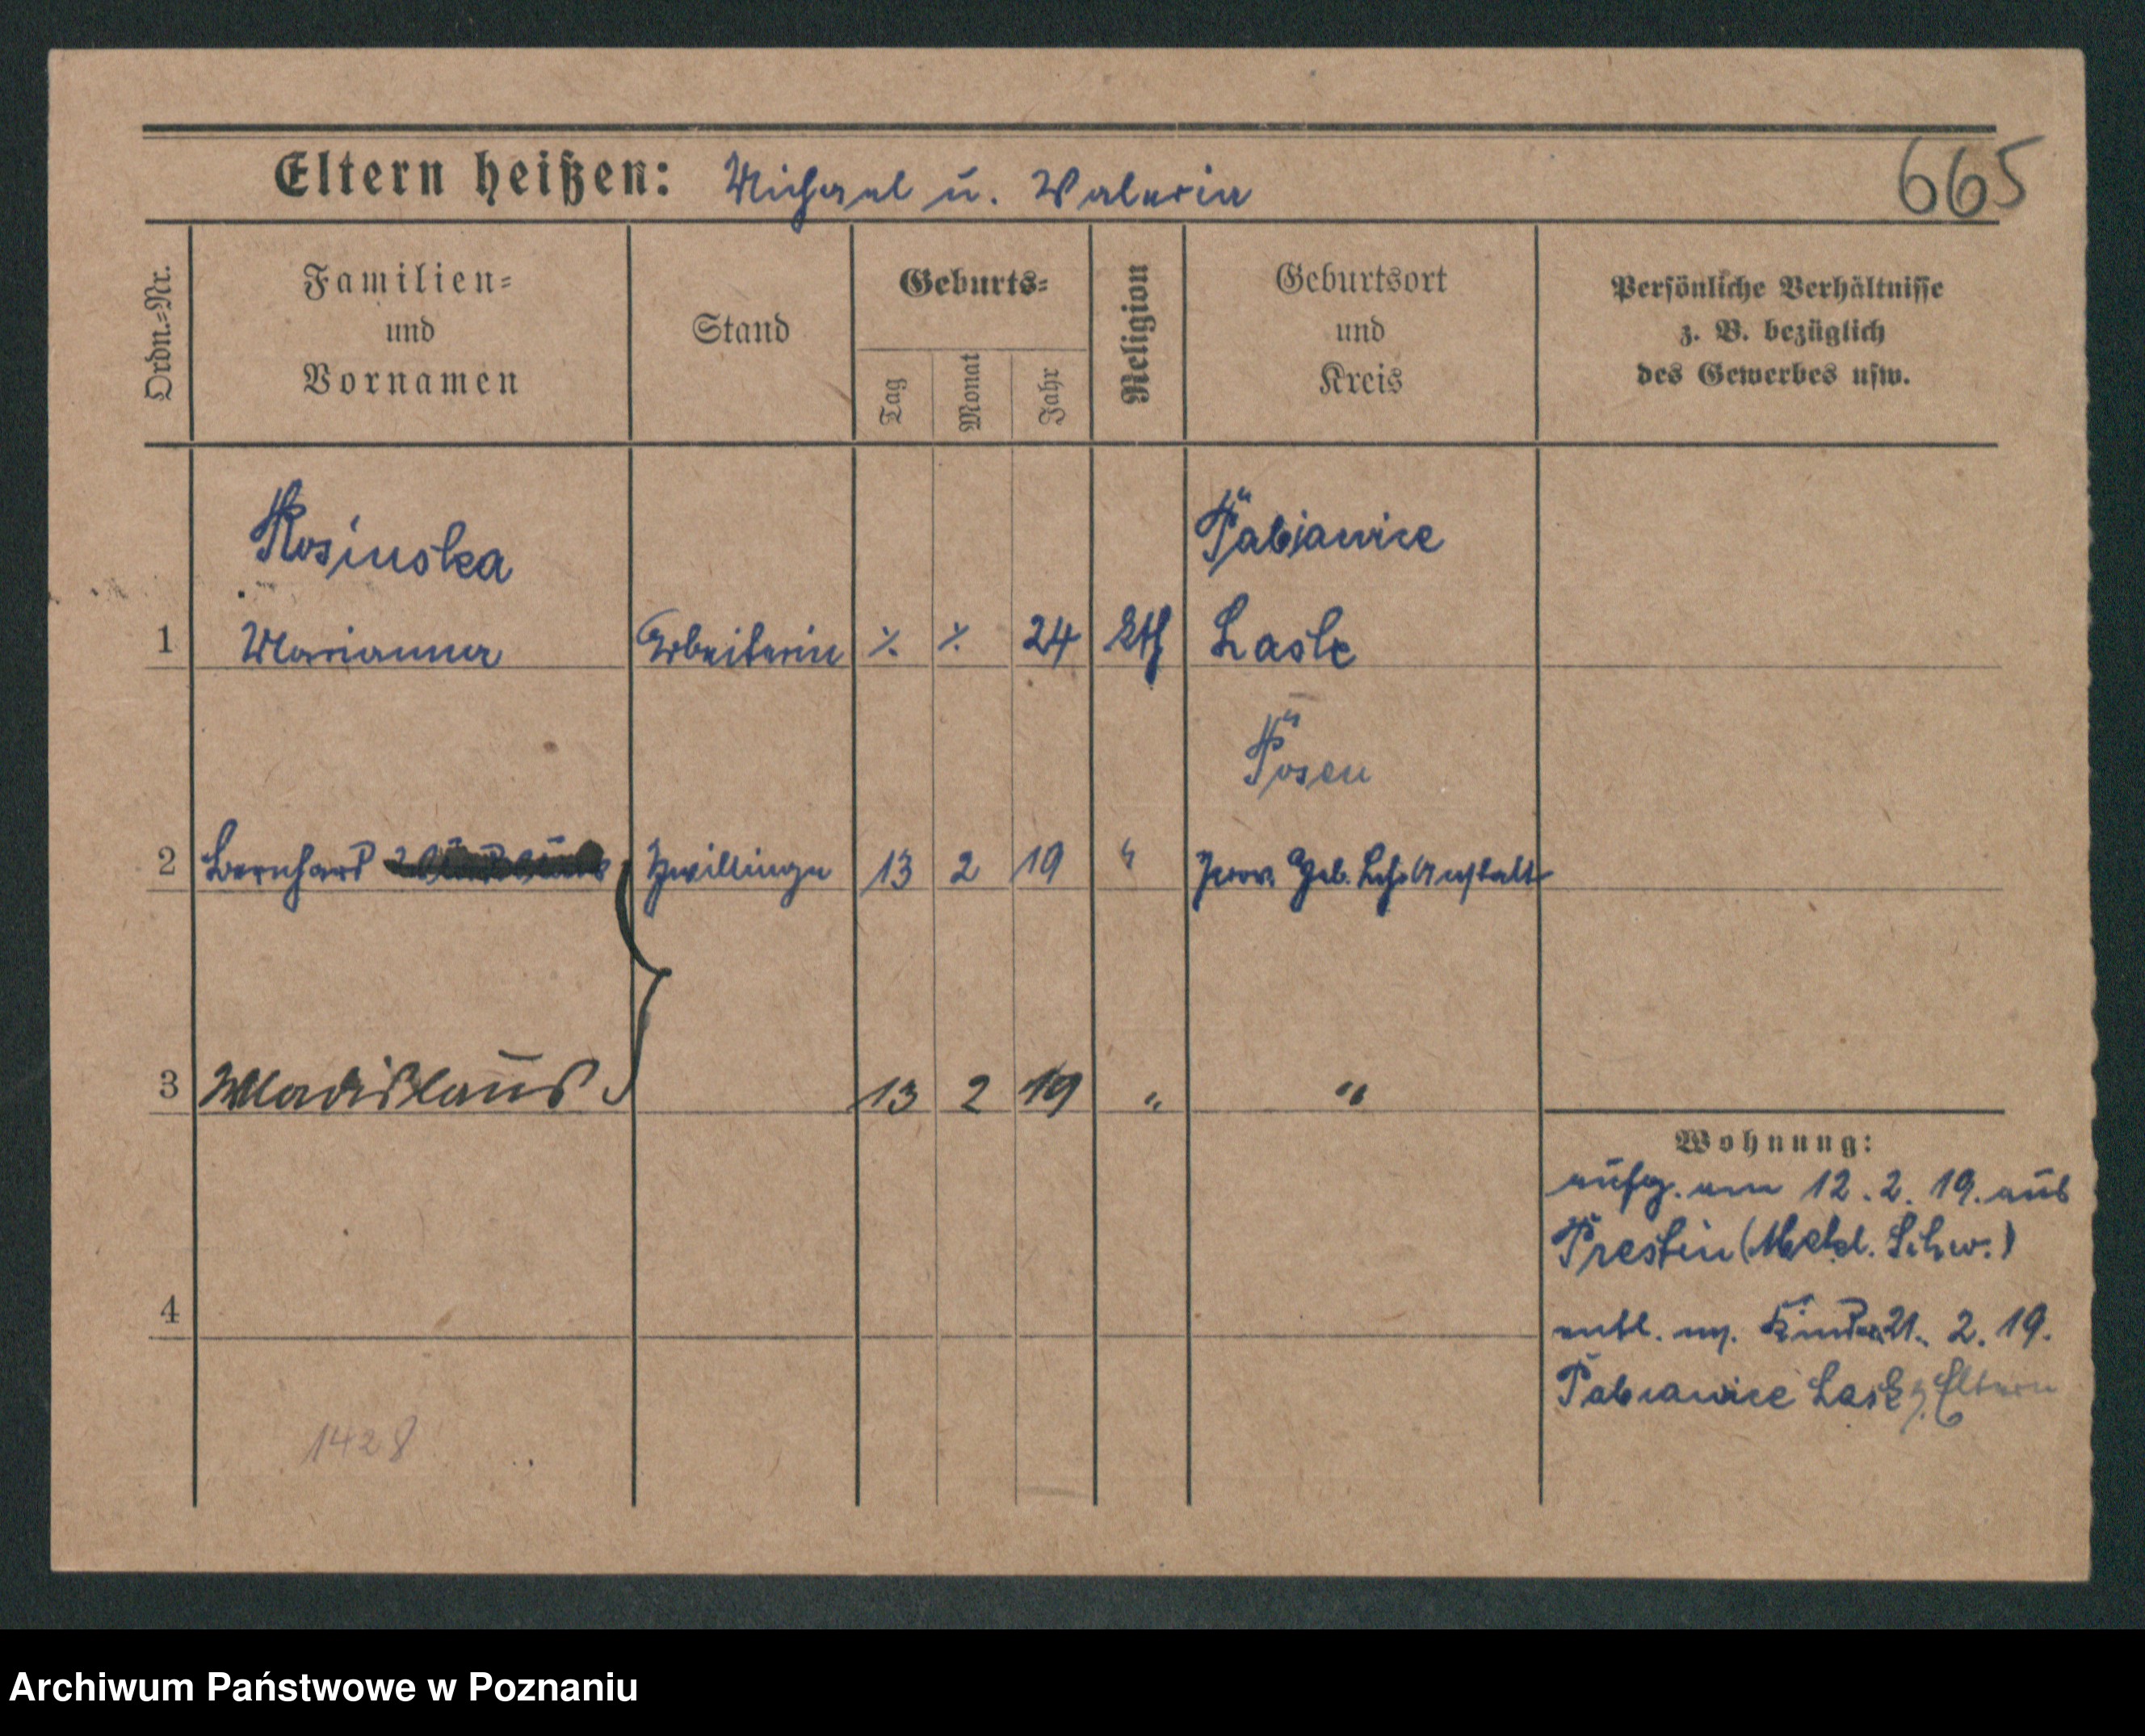 Eltern heißen: Michael u. Valeria
665
Ordn.=Nr.
Familien=
und
Vornamen
Stand
Geburts=
Tag
Monat
Jahr
Religion
Geburtsort
und
Kreis
Persönliche Verhältnisse
z. B. bezüglich
des Gewerbes usw.
Rosinska
Pabianice
1 Marianna Arbeiterin ٪ ٪ 24 kth Lask
Posen
2 Bernhard Zwillinge 13 2 19 " Prov. Heb. Lehr Anstalt
3 Wladislaus 13 2 19 " "
Wohnung:
aufg. am 12. 2. 19. aus
Prestin (Meckl. Schw.)
4
entl. m. Kinder 21. 2. 19.
Pabianice Lask z. Eltern
1428
Archiwum Państwowe w Poznaniu